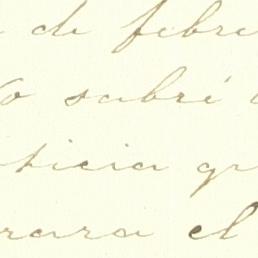 de febre
o sabré
ticia qu
rara el